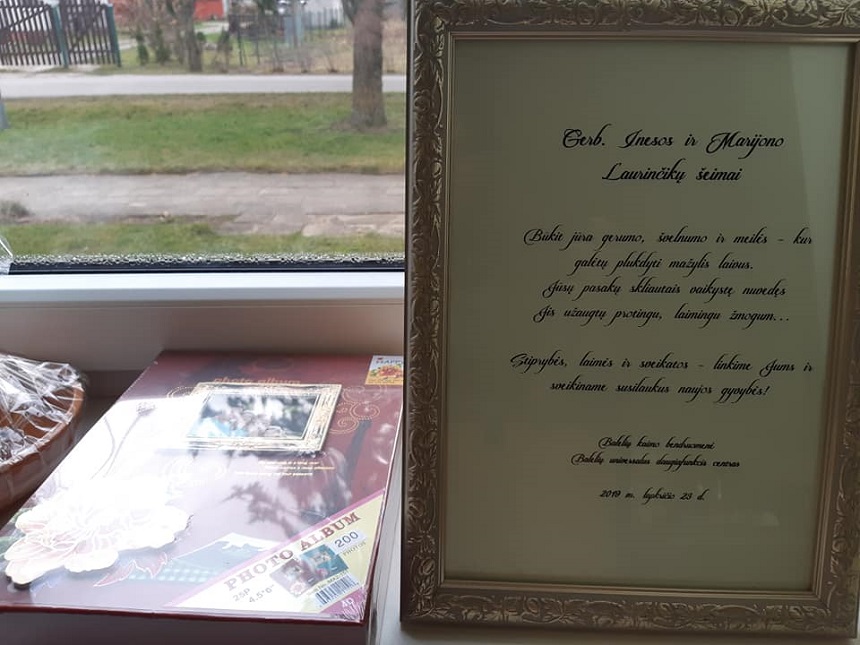 Photo album
HAPPY
PHOTO ALBUM
200
25P
Gerb. Inesos ir Marijono
Laurinčikų šeimai
Būkit jūra gerumo, švelnumo ir meilės - kur
galėtų plukdyti mažylis laivus.
Jūsų pasakų skliautais vaikystę nuvedęs
Jis užaugtų protingu, laimingu žmogum...
Stiprybės, laimės ir sveikatos - linkime Jums ir
sveikiname susilaukus naujos gyvybės!
kaimo bendruomenė
universalus daugiafunkcis centras
2019 m. lapkričio 23 d.